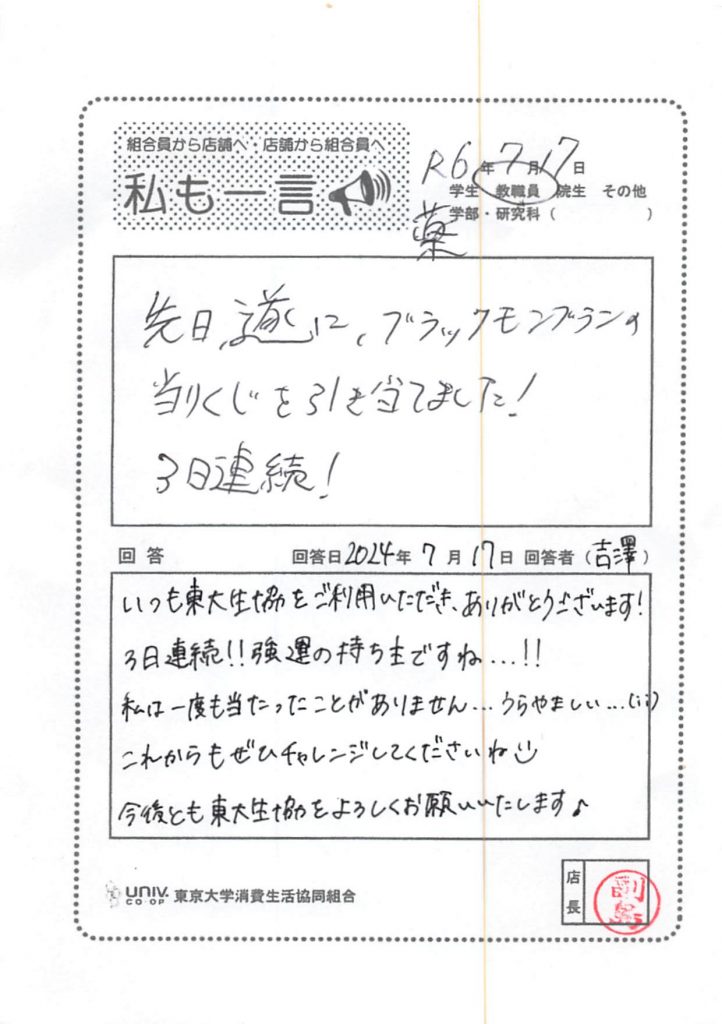 組合員から店舗へ・店舗から組合員へ
私も一言
R6年7月17日
学生 教職員 院生 その他
学部・研究科（ ）
薬
先日、遂に、ブラックモンブランの
当りくじを引き当てました！
3日連続！
回答 回答日2024年7月17日 回答者（吉澤）
いつも東大生協をご利用いただき、ありがとうございます！
3日連続!!強運の持ち主ですね...!!
私は一度も当たったことがありません...うらやましい...(;;)
これからもぜひチャレンジしてくださいね
今後とも東大生協をよろしくお願いいたします♪
UNIV.
CO-OP 東京大学消費生活協同組合
店長
副島